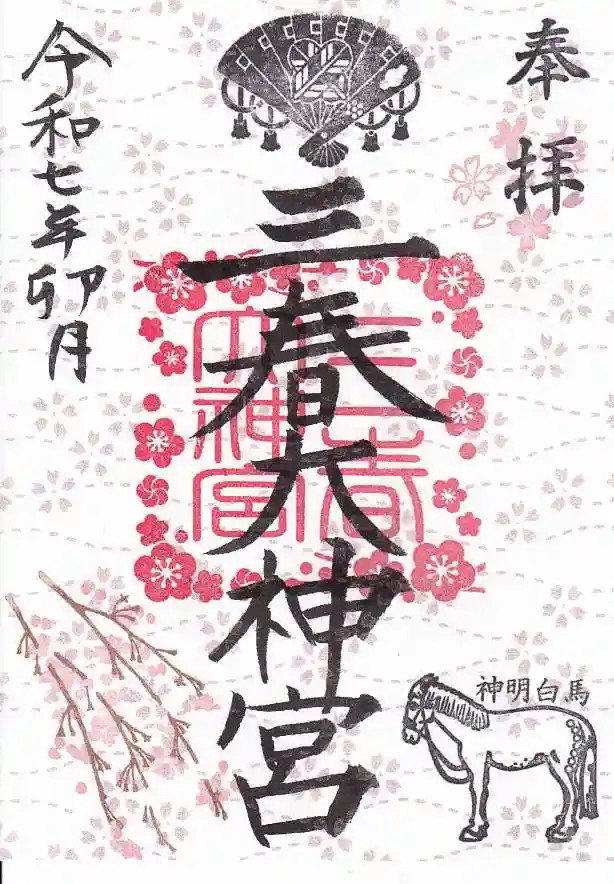 奉拝
三春大神宮
三春大神宮
今和七年卯月
神明白馬